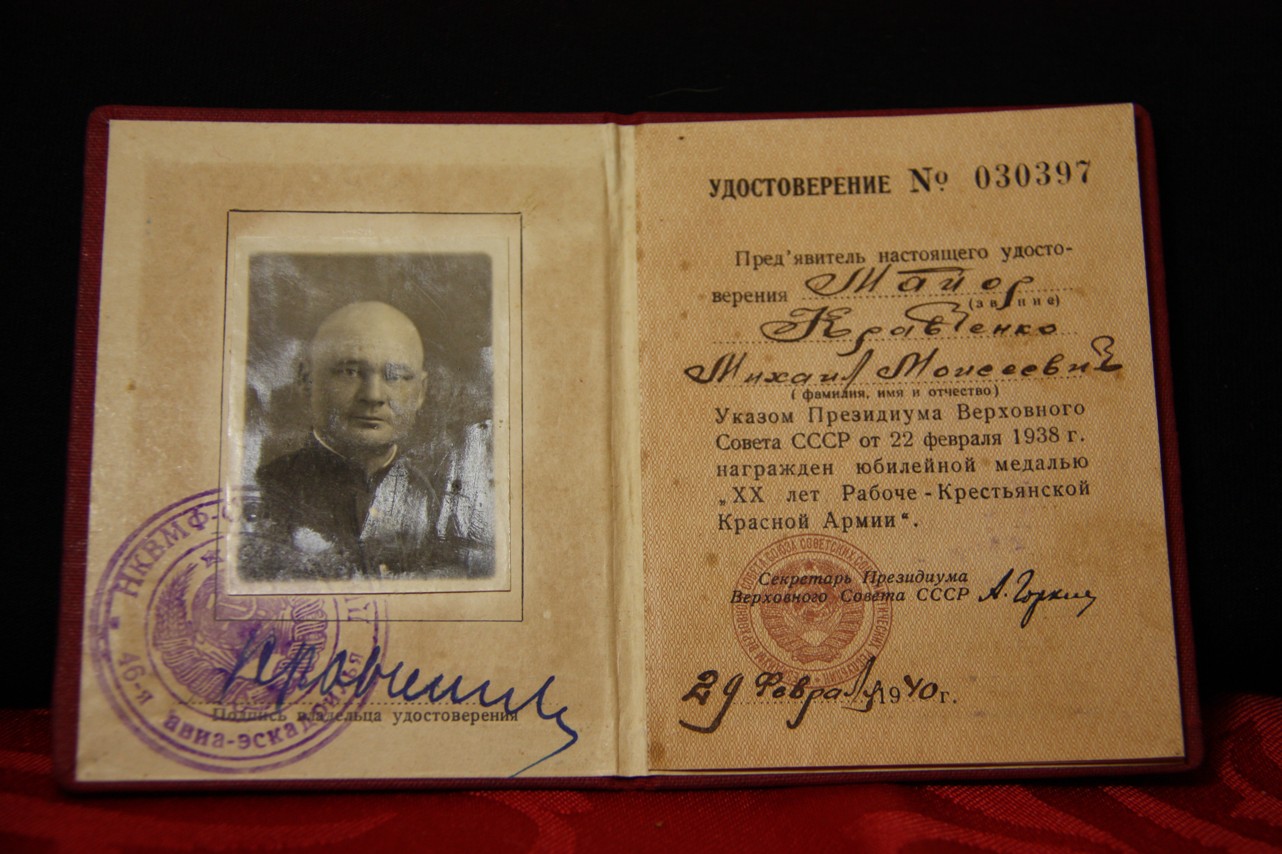 НКВМФ-С
49-я авиа-эскадрилья
Кравченко
Подпись владельца удостоверения
УДОСТОВЕРЕНИЕ № 030397
Пред'явитель настоящего удосто-
верения Майор
(звание)
Кравченко
Михаил Моисеевич
(фамилия, имя и отчество)
Указом Президиума Верховного
Совета СССР от 22 февраля 1938 г.
награжден юбилейной медалью
„XX лет Рабоче-Крестьянской
Красной Армии“.
Секретарь Президиума
Верховного Совета СССР А. Горкин
29 Февраля 1940 г.